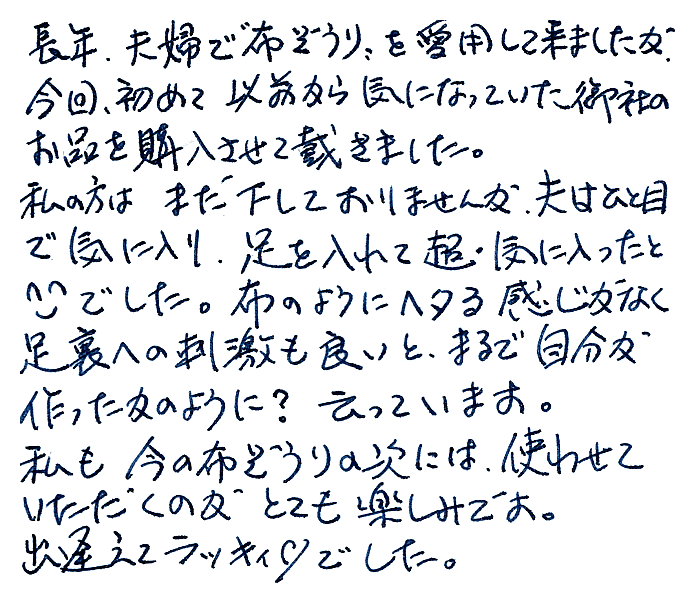 長年、夫婦で"布ぞうり"を愛用して来ましたが、
今回、初めて 以前から気になっていた御社の
お品を購入させて戴きました。
私の方は まだ下しておりませんが、夫はひと目
で気に入り、足を入れて超・気に入ったと
^^でした。布のようにヘタる感じがなく
足裏への刺激も良いと、まるで自分が
作ったかのように？云っています。
私も 今の布ぞうりの次には、使わせて
いただくのが とても楽しみです。
出逢えてラッキィ♡でした。